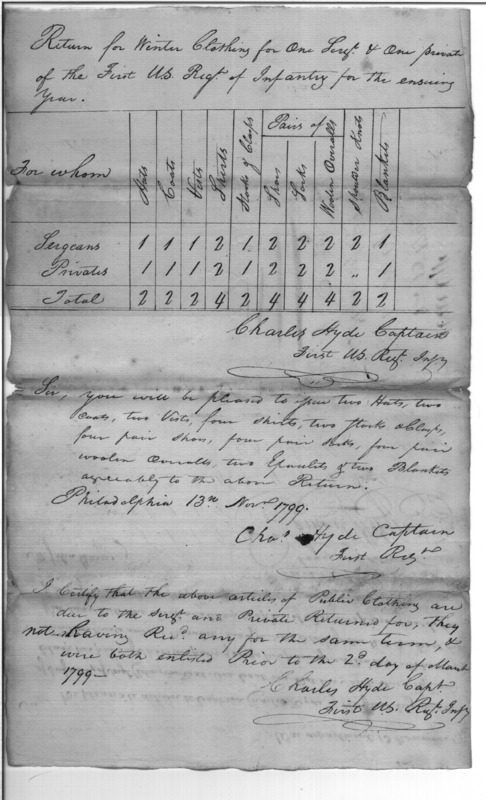 Return for Winter Clothing for One Sergt & One private
of the First U.S. Regt of Infantry for the ensuing
Year.
For whom Hats Coats Vests Shirts Stocks & Clasps Pairs of Shoes Socks Woolen Overalls Shoulder Knots Blankets
Sergeans 1 1 1 2 1 2 2 2 2 1
Privates 1 1 1 2 1 2 2 2 " 1
Total 2 2 2 4 2 4 4 4 2 2
Charles Hyde Captain
First U.S. Regt. Infy
Sir, you will be pleased to issue two Hats, two
Coats, two Vists, four shirts, two stocks & Clasps,
four pair shoes, four pair socks, four pair
woolen overalls, two Epaulets & two Blankets
agreeably to the above Return.
Philadelphia 13th Novr. 1799.
Chas. Hyde Captain
First Regt
I Certify that the above articles of Public Clothing are
due to the Sergt and Private Returned for, they
not having Recd. any for the same term, &
were both enlisted Prior to the 2d. day of March
1799—
Charles Hyde Capt.
First U.S. Regt. Infy